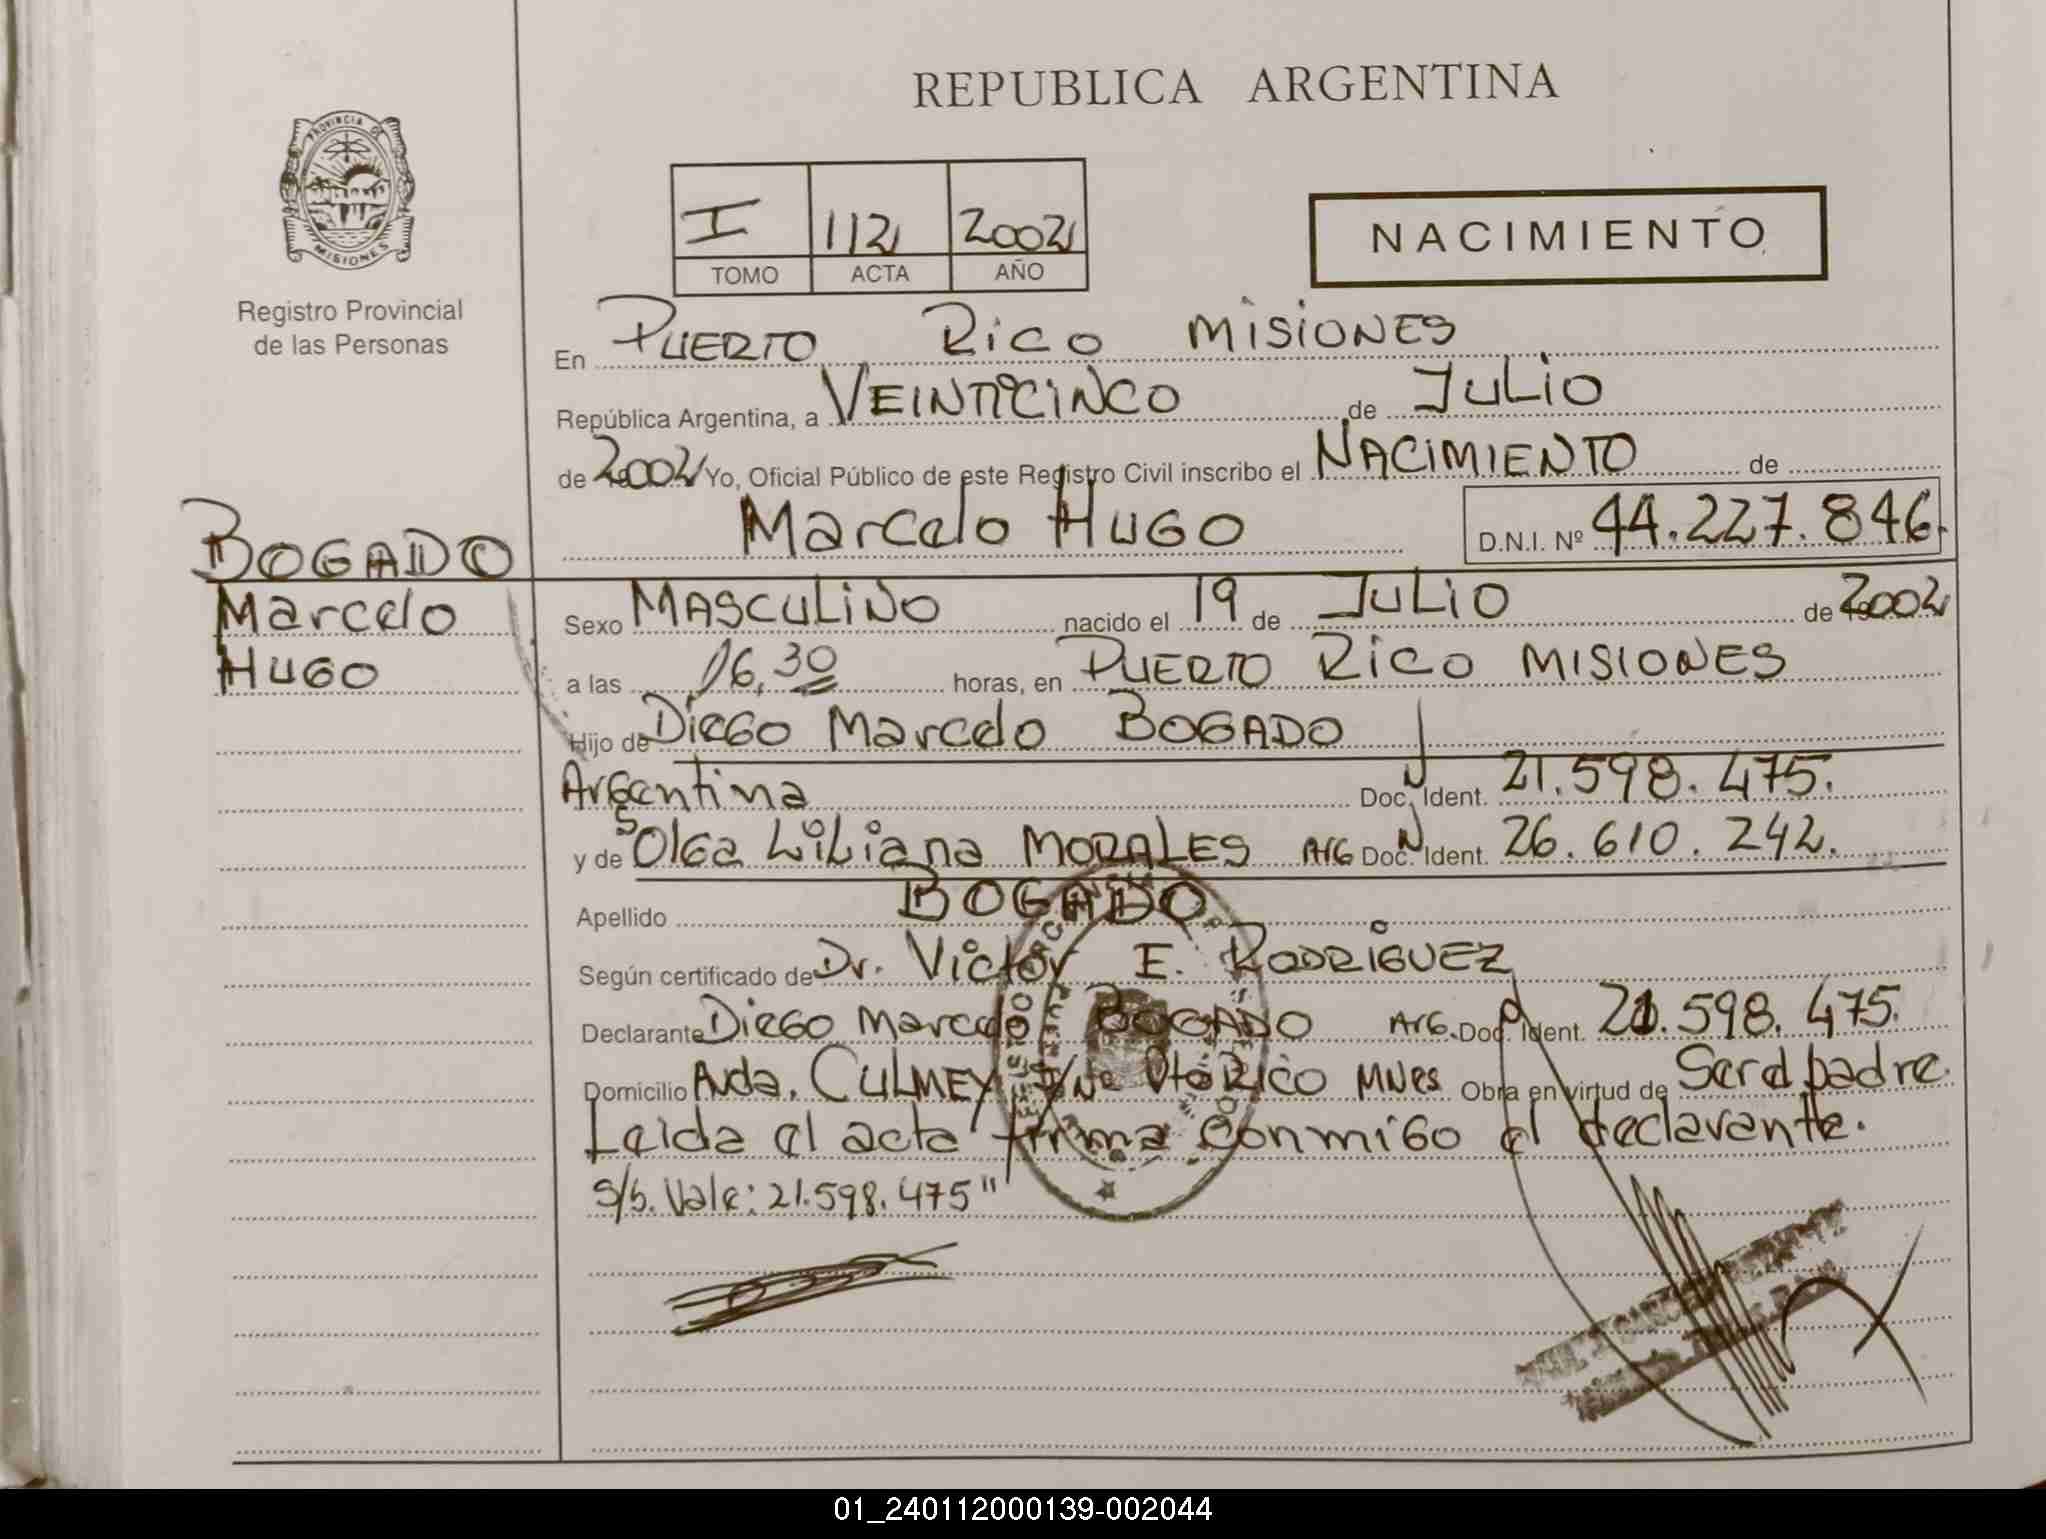 REPUBLICA ARGENTINA
PROVINCIA DE
MISIONES
Registro Provincial
de las Personas
I 112 2002
TOMO ACTA AÑO
NACIMIENTO
En PUERTO Rico MISIONES
República Argentina, a VEINTICINCO de JULIO
de 2002 Yo, Oficial Público de este Registro Civil inscribo el NACIMIENTO de
Marcelo HUGO D.N.I. Nº 44.227.846.
BOGADO
Marcelo
HUGO
Sexo MASCULINO nacido el 19 de JULIO de 2002
a las 16,30 horas, en PUERTO RICO MISIONES
Hijo de DIEGO Marcelo BOGADO
Argentina Doc. Ident. 21.598.475.
y de Olga LiLiana MORALES Arg Doc. Ident. 26.610.242.
Apellido BOGADO
Según certificado de Dr. Victor E. RODRIGUEZ
Declarante DIEGO Marcelo BOGADO Arg. Doc. Ident. 21.598.475.
Domicilio Avda. CULMEY S/Nº Pto RICO MNes Obra en virtud de Ser el padre.
Leida el acta firma conmigo el declarante.
s/b. Vale: 21.598.475"
01_240112000139-002044